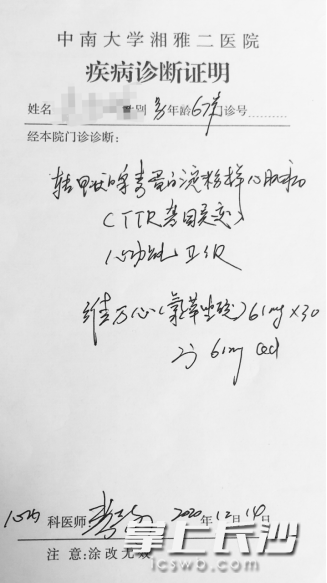 中南大学湘雅二医院
疾病诊断证明
姓名 性别 男 年龄 67岁 门诊号
经本院门诊诊断:
转甲状腺素蛋白淀粉样心肌病
(TTR基因突变)
心功能 Ⅱ级
维万心(氯苯唑酸) 61mg×30
61mg qd
心内 科医师: 2020年12月14日
注意:涂改无效
掌上长沙
icswb.com